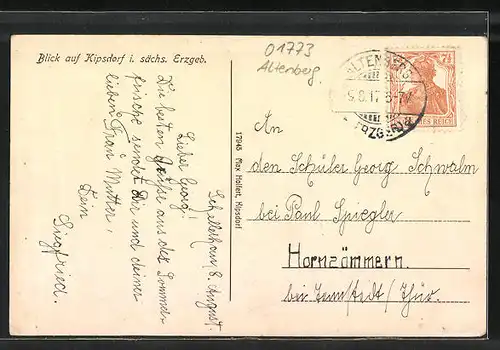 Blick auf Kipsdorf i. sächs. Erzgeb.
01773
Altenberg.
ALTENBERG
9.8.17. 6-7N
(ERZGEB.)
7½
DEUTSCHES REICH
Schellerhau, 8. August.
Lieber Georg!
Die besten Grüße aus der Sommer-
frische sendet Dir und deiner
lieben Frau Mutter,
Dein
Siegfried.
17045 Max Halfert, Kipsdorf
An
den Schüler Georg Schwalm
bei Paul Spiegler
Hornzömmern.
bei Tennstedt/Thür.